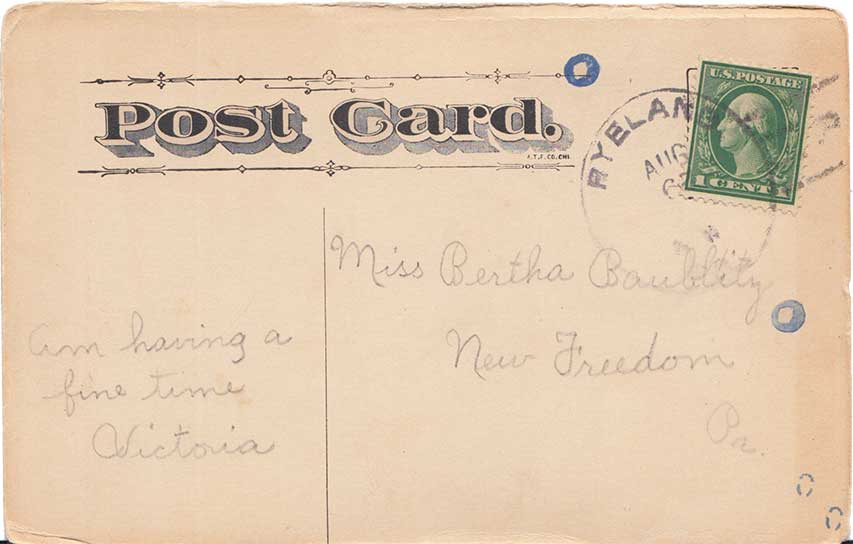 Post Card.
A.T.F.CO. CHI.
RYELAND
AUG
U.S. POSTAGE
1 CENT 1
Miss Bertha Baublitz
New Freedom
Pa.
am having a
fine time
Victoria